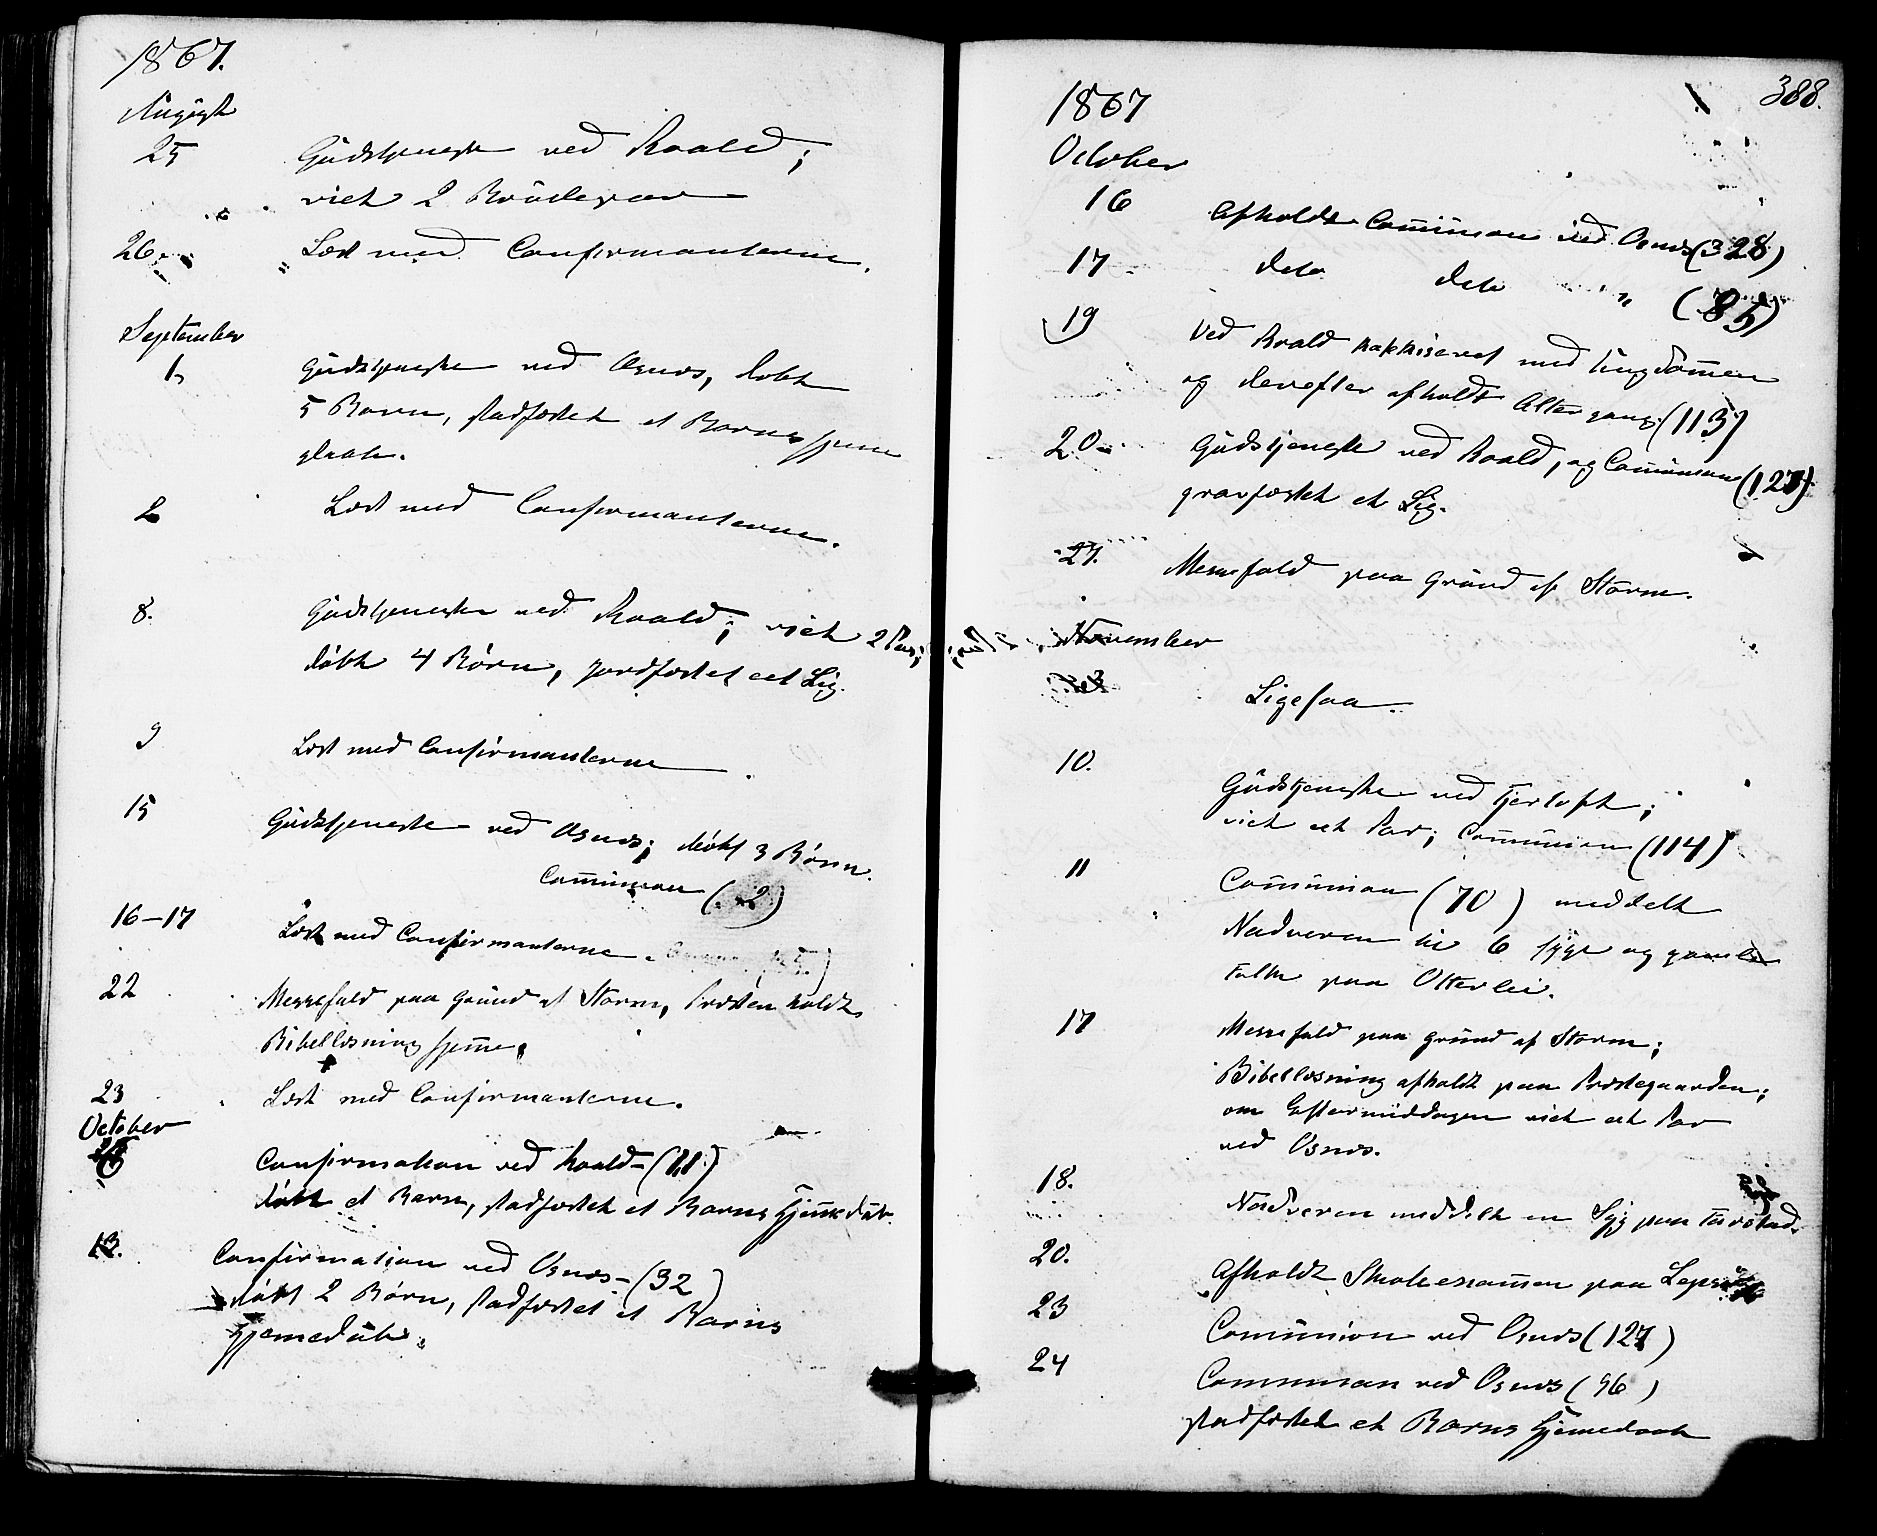 1867.
August
25 Gudstjeneste ved Roald;
viet 2 Brudepar
26. Læst med Confirmanterne.
September
1. Gudstjeneste ved Osnæs, døbt
5 Børn, stadfæstet et Barns hjemme
daab.
2 Læst med Confirmanterne.
8. Gudstjeneste ved Roald; viet 2 Par;
døbt 4 Børn, jordfæstet eet Lig.
9 Læst med Confirmanterne.
15 Gudstjeneste ved Osnæs; døbt 3 Børn.
Communion ( 2)
16-17 Læst med Confirmanterne.
22 Messefald paa Grund af Storm, Præsten holdt
Bibellæsning hjemme.
23 Læst med Confirmanterne.
October
6 Confirmation ved Roald- (21.)
døbt et Barn, stadfæstet et Barns Hjemmedaab.
13. Confirmation ved Osnæs- (32)
døbt 2 Børn, stadfæstet et Barns
Hjemmedaab.
388.
1867
October
16 Afholdt Communion ved Osnæs (328)
17 dito dito " (85)
19 Ved Roald kateciseret med Ungdommen
og derefter afholdt Altergang. (113)
20 Gudstjeneste ved Roald, og Communion (127)
gravfæstet et Lig.
27. Messefald paa Grund af Storm.
November
3 Ligesaa.
10. Gudstjeneste ved Fjertoft;
viet et Par; Communion (114)
11 Communion (70) meddelt
Nadveren til 6 syge og gamle
Folk paa Otterlei.
17 Messefald paa Grund af Storm;
Bibellæsning afholdt paa Præstegaarden;
om Eftermiddagen viet et Par
ved Osnæs.
18. Nadveren meddelt en Syg paa
20. Afholdt Skoleexamen paa Lepsø
23 Communion ved Osnæs (127)
24 Communion ved Osnæs (96)
stadfæstet et Barns Hjemmedaab